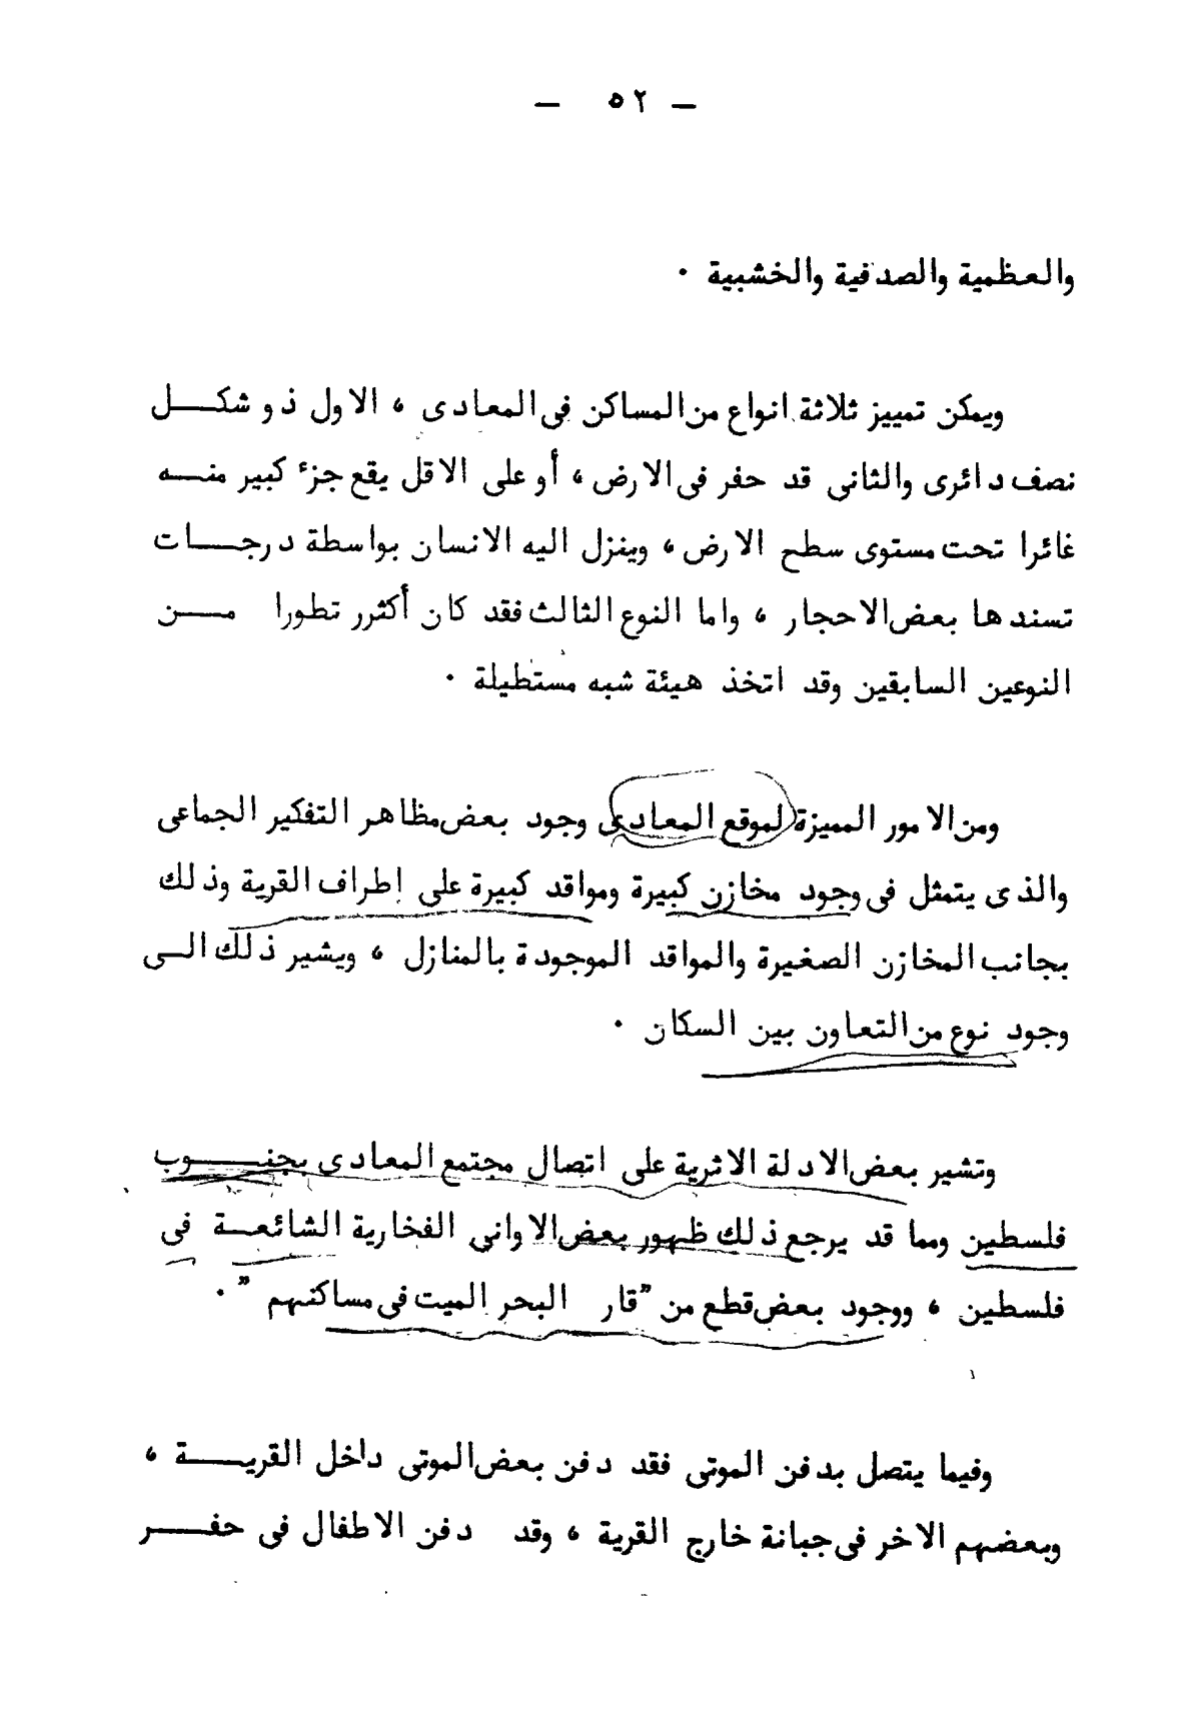 — ٥٢ —
والعظمية والصدفية والخشبية .
ويمكن تمييز ثلاثة انواع من المساكن فى المعادى ، الاول ذو شكـــل
نصف دائرى والثانى قد حفر فى الارض ، أو على الاقل يقع جزء كبير منـــه
غائرا تحت مستوى سطح الارض ، وينزل اليه الانسان بواسطة درجـــات
تسندها بعض الاحجار ، واما النوع الثالث فقد كان أكثرر تطورا مـــن
النوعين السابقين وقد اتخذ هيئة شبه مستطيلة .
ومن الامور المميزة لموقع المعادى وجود بعض مظاهر التفكير الجماعى
والذى يتمثل فى وجود مخازن كبيرة ومواقد كبيرة على إطراف القرية وذلك
بجانب المخازن الصغيرة والمواقد الموجودة بالمنازل ، ويشير ذلك الـى
وجود نوع من التعاون بين السكان .
وتشير بعض الادلة الاثرية على اتصال مجتمع المعادى بجنـــوب
فلسطين ومما قد يرجع ذلك ظهور بعض الاوانى الفخارية الشائعـــة فى
فلسطين ، ووجود بعض قطع من "قار البحر الميت فى مساكنهم" .
وفيما يتصل بدفن الموتى فقد دفن بعض الموتى داخل القريـــة ،
وبعضهم الاخر فى جبانة خارج القرية ، وقد دفن الاطفال فى حفـــر